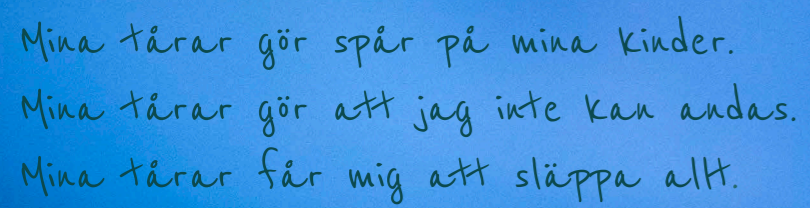 Mina tårar gör spår på mina kinder.
Mina tårar gör att jag inte kan andas.
Mina tårar får mig att släppa allt.